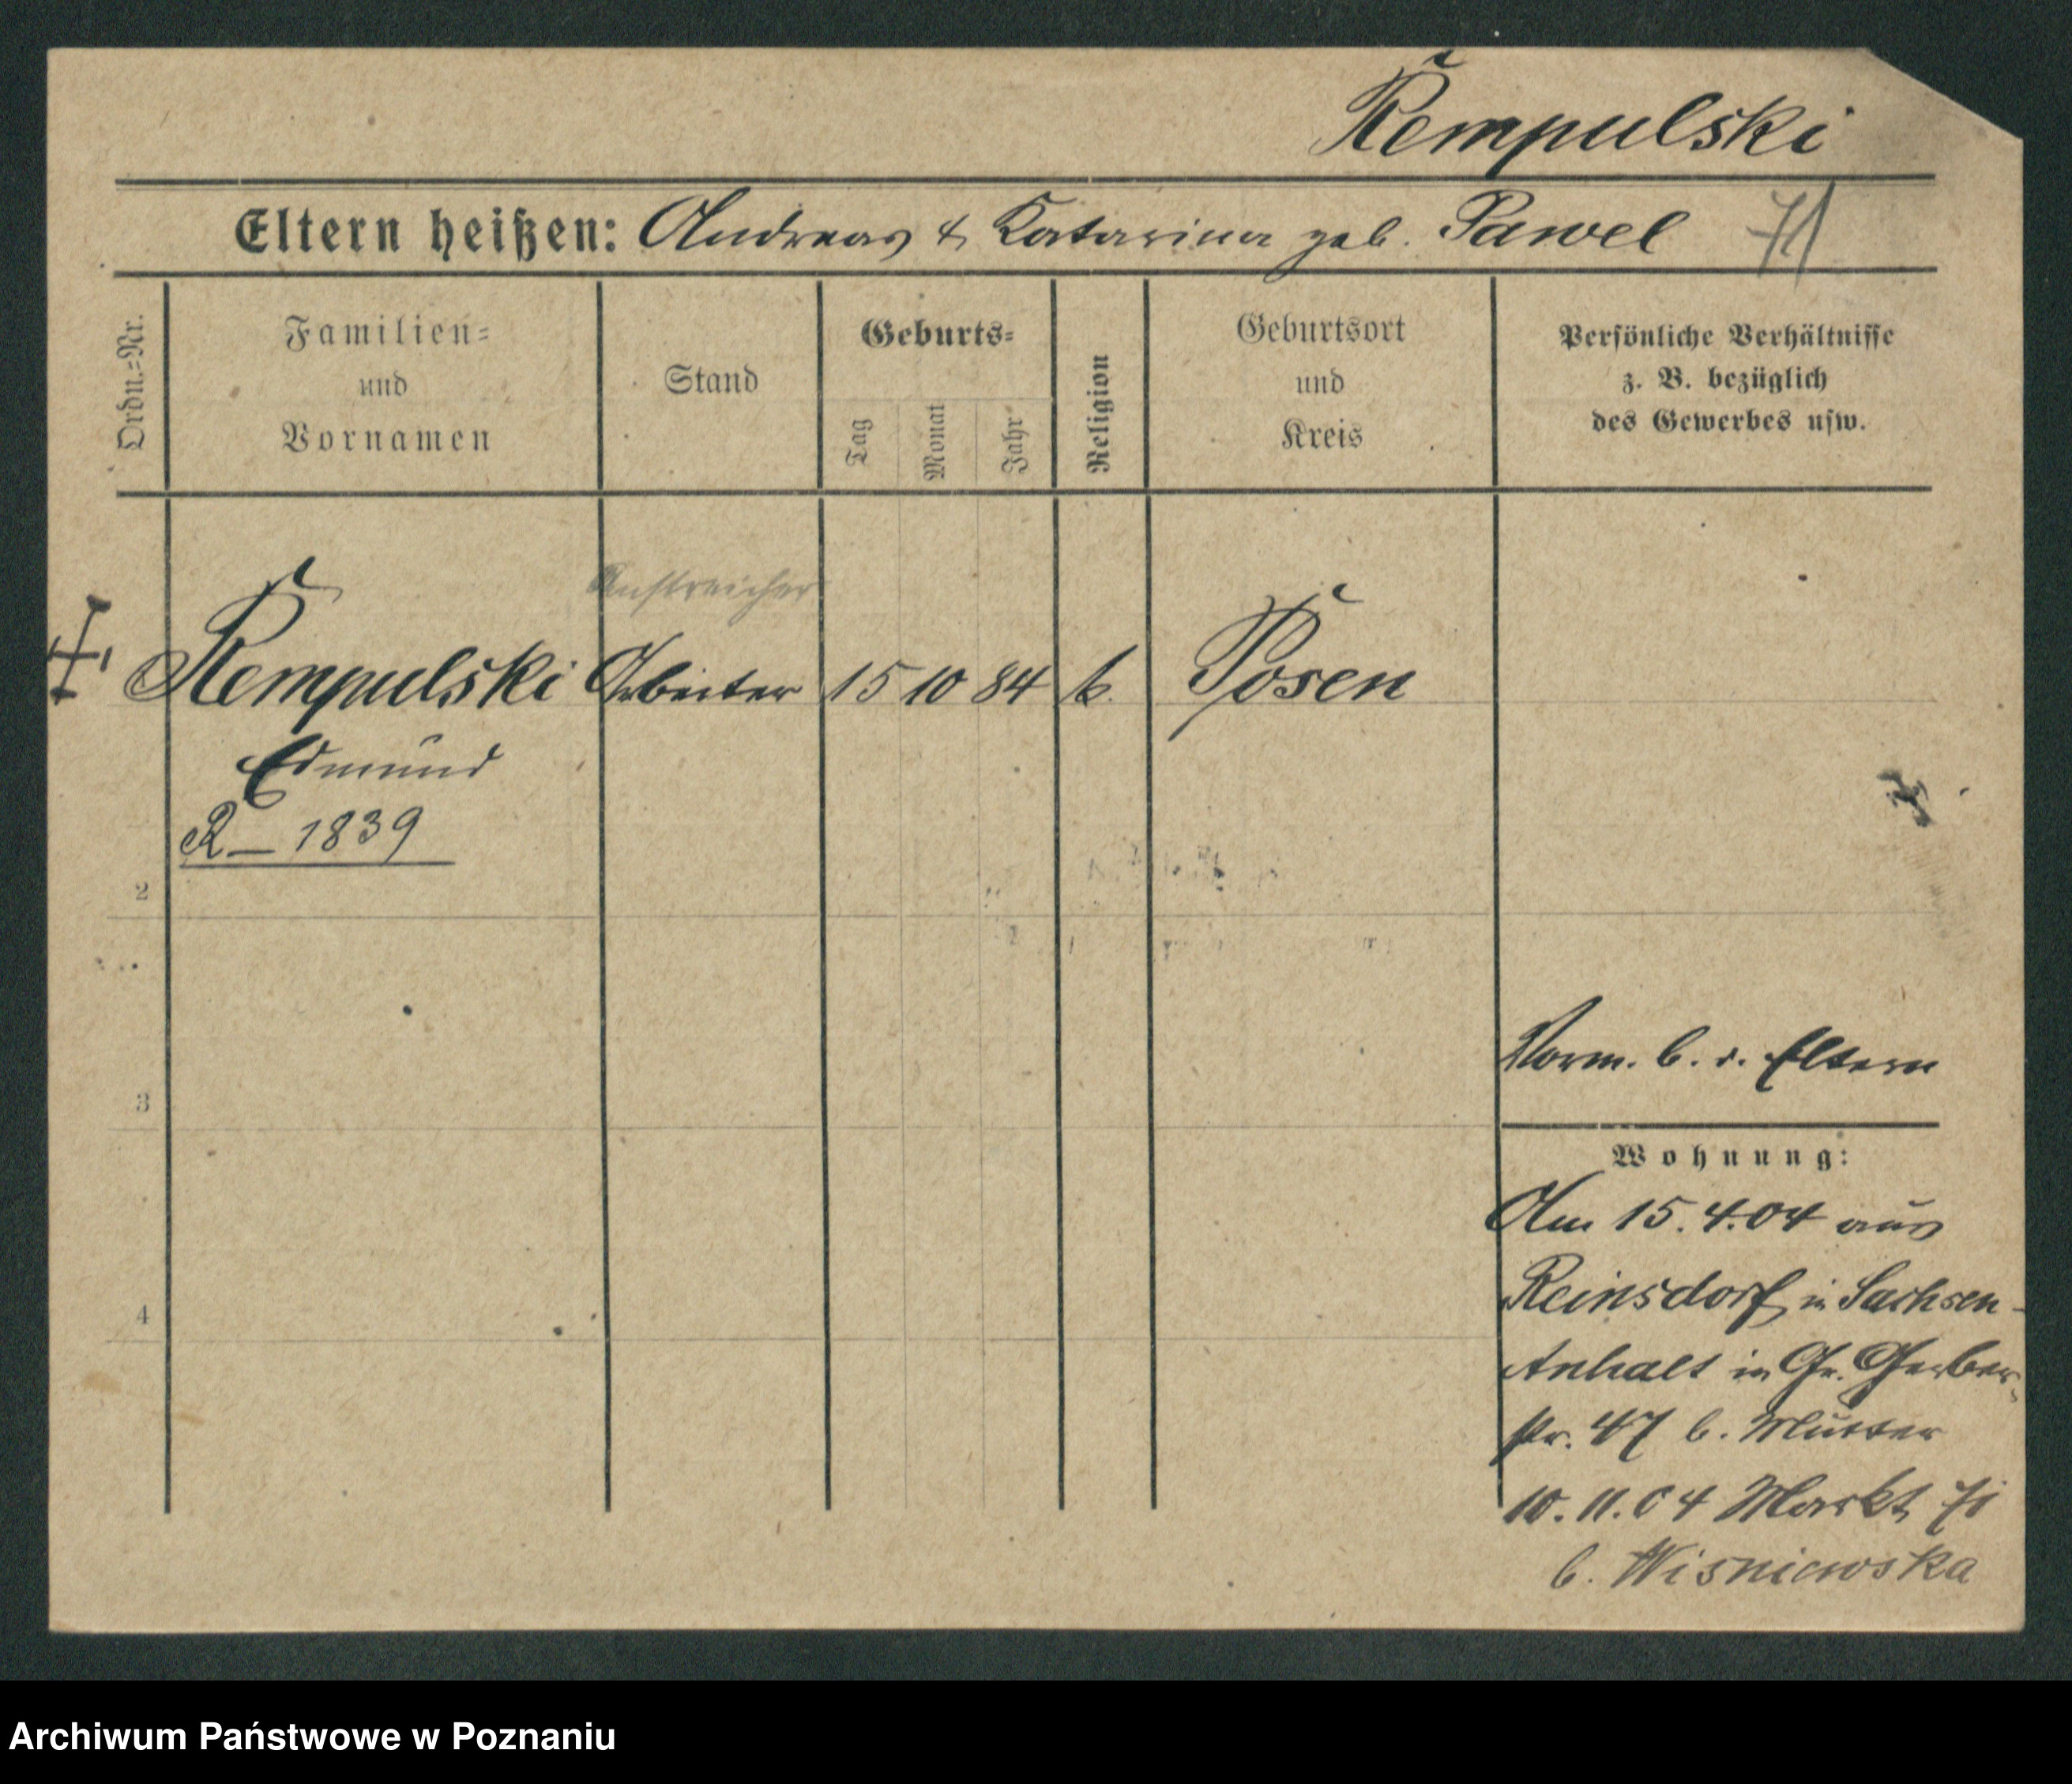 Rempulski
Eltern heißen: Andreas & Katarina geb. Pawel 71
Ordn.=Nr.
Familien=
und
Vornamen
Stand
Geburts=
Tag
Monat
Jahr
Religion
Geburtsort
und
Kreis
Persönliche Verhältnisse
z. B. bezüglich
des Gewerbes usw.
Anstreicher
Rempulski Arbeiter 15 10 84 k. Posen
Edmund
R — 1839
2
3
4
Vorm. b. d. Eltern
Wohnung:
Am 15.4.04 aus
Reinsdorf in Sachsen-
Anhalt in Gr. Gerber-
str. 47 b. Mutter
10.11.04 Markt 71
b. Wisniewska
Archiwum Państwowe w Poznaniu